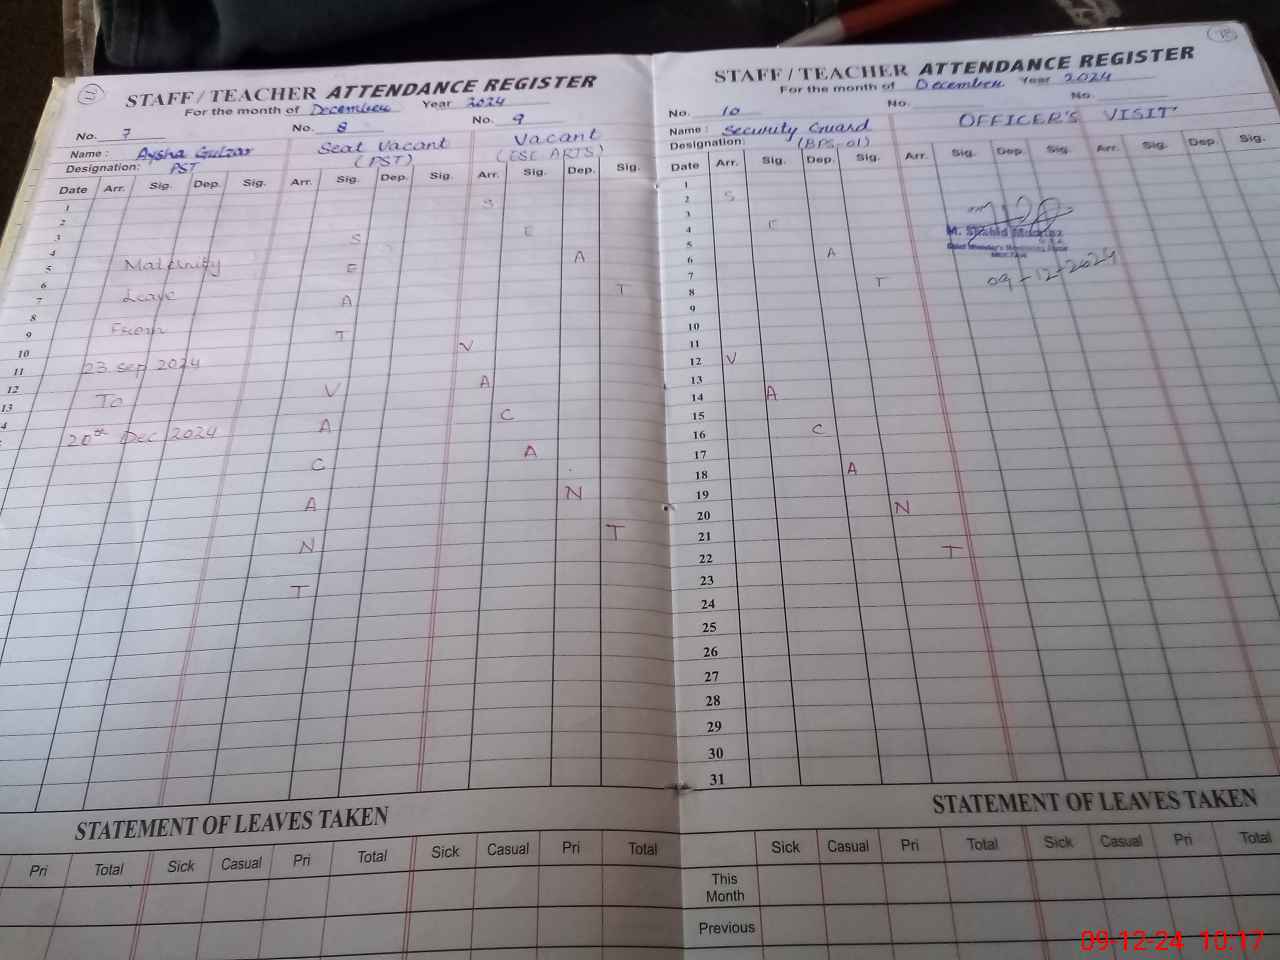 STAFF / TEACHER ATTENDANCE REGISTER
For the month of December Year 2024
No. 7 No. 8 No. 9
Name : Aysha Gulzar Seat Vacant Vacant
Designation: PST (PST) (ESE ARTS)
Date Arr. Sig. Dep. Sig. Arr. Sig. Dep. Sig. Arr. Sig. Dep. Sig.
1 S
2 E
3 S
4 A
5 Maternity E
6 T
7 Leave A
8
9 From T
10 V
11 23 Sep 2024
12 V A
13 To
4 A C
20th Dec 2024
C A
A N
N T
T
STATEMENT OF LEAVES TAKEN
Pri Total Sick Casual Pri Total Sick Casual Pri Total
78
STAFF / TEACHER ATTENDANCE REGISTER
For the month of December Year 2024
No. 10 No. No.
Name : Security Guard OFFICER'S VISIT
Designation: (BPS-01)
Date Arr. Sig. Dep. Sig. Arr. Sig. Dep. Sig. Arr. Sig. Dep. Sig.
1
2 S
3
4 E
5
6 A
7 T
8
9
10
11
12 V
13
14 A
15
16 C
17
18 A
19
20 N
21
22 T
23
24
25
26
27
28
29
30
31
09-12-2024
STATEMENT OF LEAVES TAKEN
Sick Casual Pri Total Sick Casual Pri Total
This Month
Previous
09-12-24 10:17